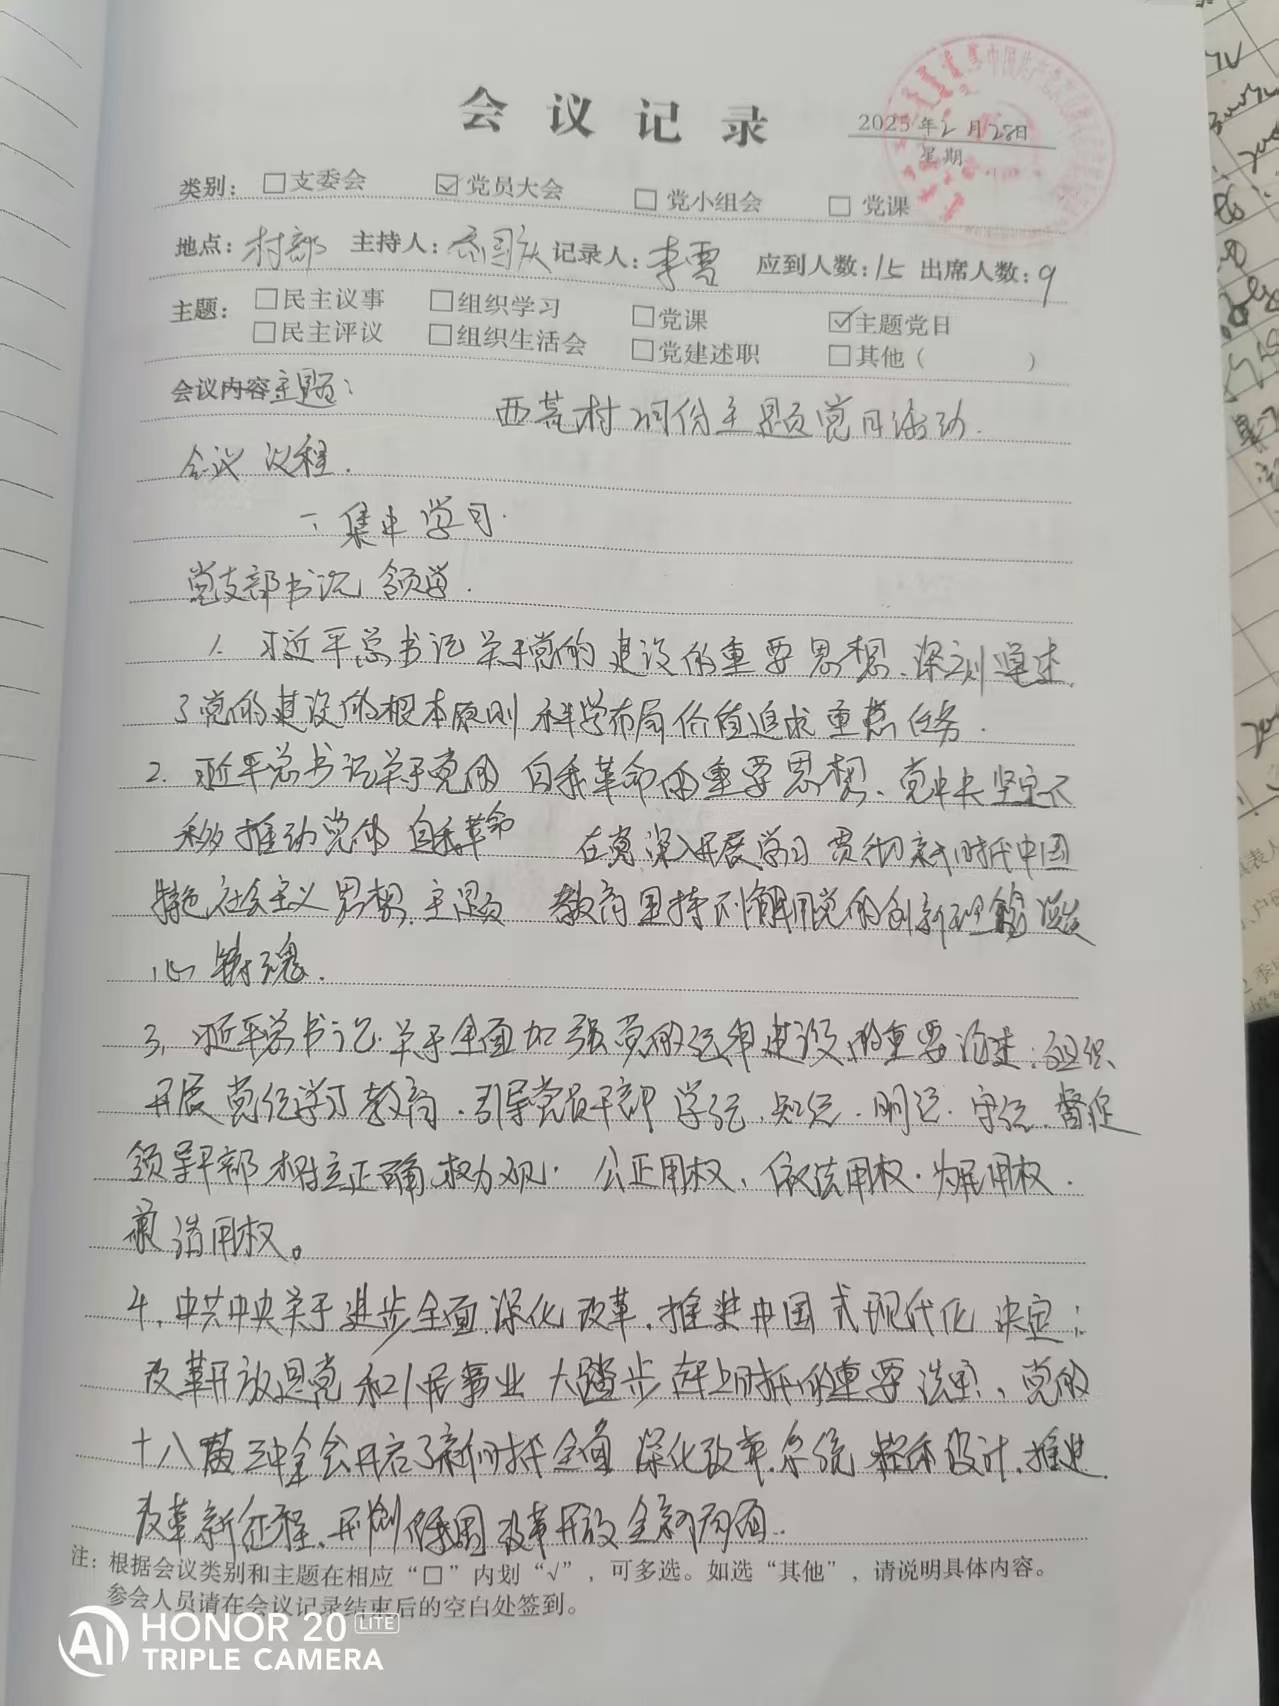 会议记录
2025年2月28日
星期
类别：□支委会 ☑党员大会 □党小组会 □党课
地点：村部 主持人：国庆 记录人：李雪 应到人数：15 出席人数：9
主题：□民主议事 □组织学习 □党课 ☑主题党日
□民主评议 □组织生活会 □党建述职 □其他（ ）
会议内容主题：
西荒村2月份主题党日活动.
会议议程.
一、集中学习.
党支部书记领学.
1. 习近平总书记关于党的建设的重要思想、深刻阐述
了党的建设的根本原则 科学布局 价值追求 重点任务.
2. 习近平总书记关于党的自我革命的重要思想、党中央坚定不
移推动党的自我革命 在党深入开展学习贯彻新时代中国
特色社会主义思想.主题 教育 坚持不懈用党的创新理论凝
心铸魂.
3、习近平总书记关于全面加强党的纪律建设的重要论述：组织
开展党纪学习教育、引导党员干部学纪、知纪、明纪、守纪、督促
领导干部树立正确权力观. 公正用权、依法用权、为民用权.
廉洁用权。
4、中共中央关于进步全面深化改革、推进中国式现代化 决定：
改革开放是党和人民事业大踏步赶上时代的重要法宝、党的
十八届三中全会开启了新时代全面深化改革、系统整体设计、推进
改革新征程、开创了我国改革开放全新局面..
注：根据会议类别和主题在相应“□”内划“√”，可多选。如选“其他”，请说明具体内容。
参会人员请在会议记录结束后的空白处签到。
HONOR 20 LITE
TRIPLE CAMERA